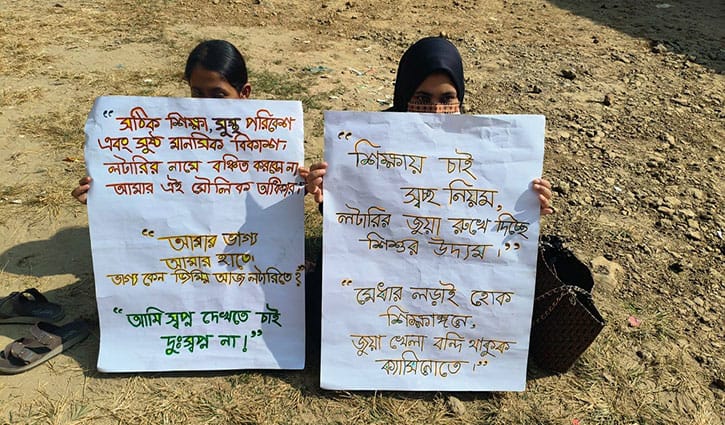 “সঠিক শিক্ষা, সুস্থ পরিবেশ
এবং সুষ্ঠ মানসিক বিকাশ।
লটারির নামে বঞ্চিত করছে না
আমার এই মৌলিক অধিকার
“আমার ভাগ্য
আমার হাতে।
ভাগ্য কেন ছিনিয় আজ লটারিতে?”
“আমি স্বপ্ন দেখতে চাই
দুঃস্বপ্ন না!”
“শিক্ষায় চাই
স্বচ্ছ নিয়ম,
লটারির জুয়া রুখে দিচ্ছে
শিশুর উদ্যম।”
“মেধার লড়াই হোক
শিক্ষাঙ্গনে,
জুয়া খেলা বন্দি থাকুক
ক্যাসিনোতে।”